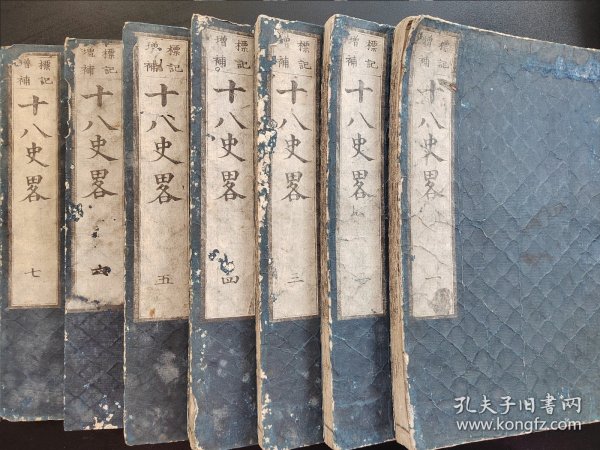 標記
增補
十八史畧
一
標記
增補
十八史畧
二
標記
增補
十八史畧
三
標記
增補
十八史畧
四
標記
增補
十八史畧
五
標記
增補
十八史畧
六
標記
增補
十八史畧
七
孔夫子旧书网
www.kongfz.com